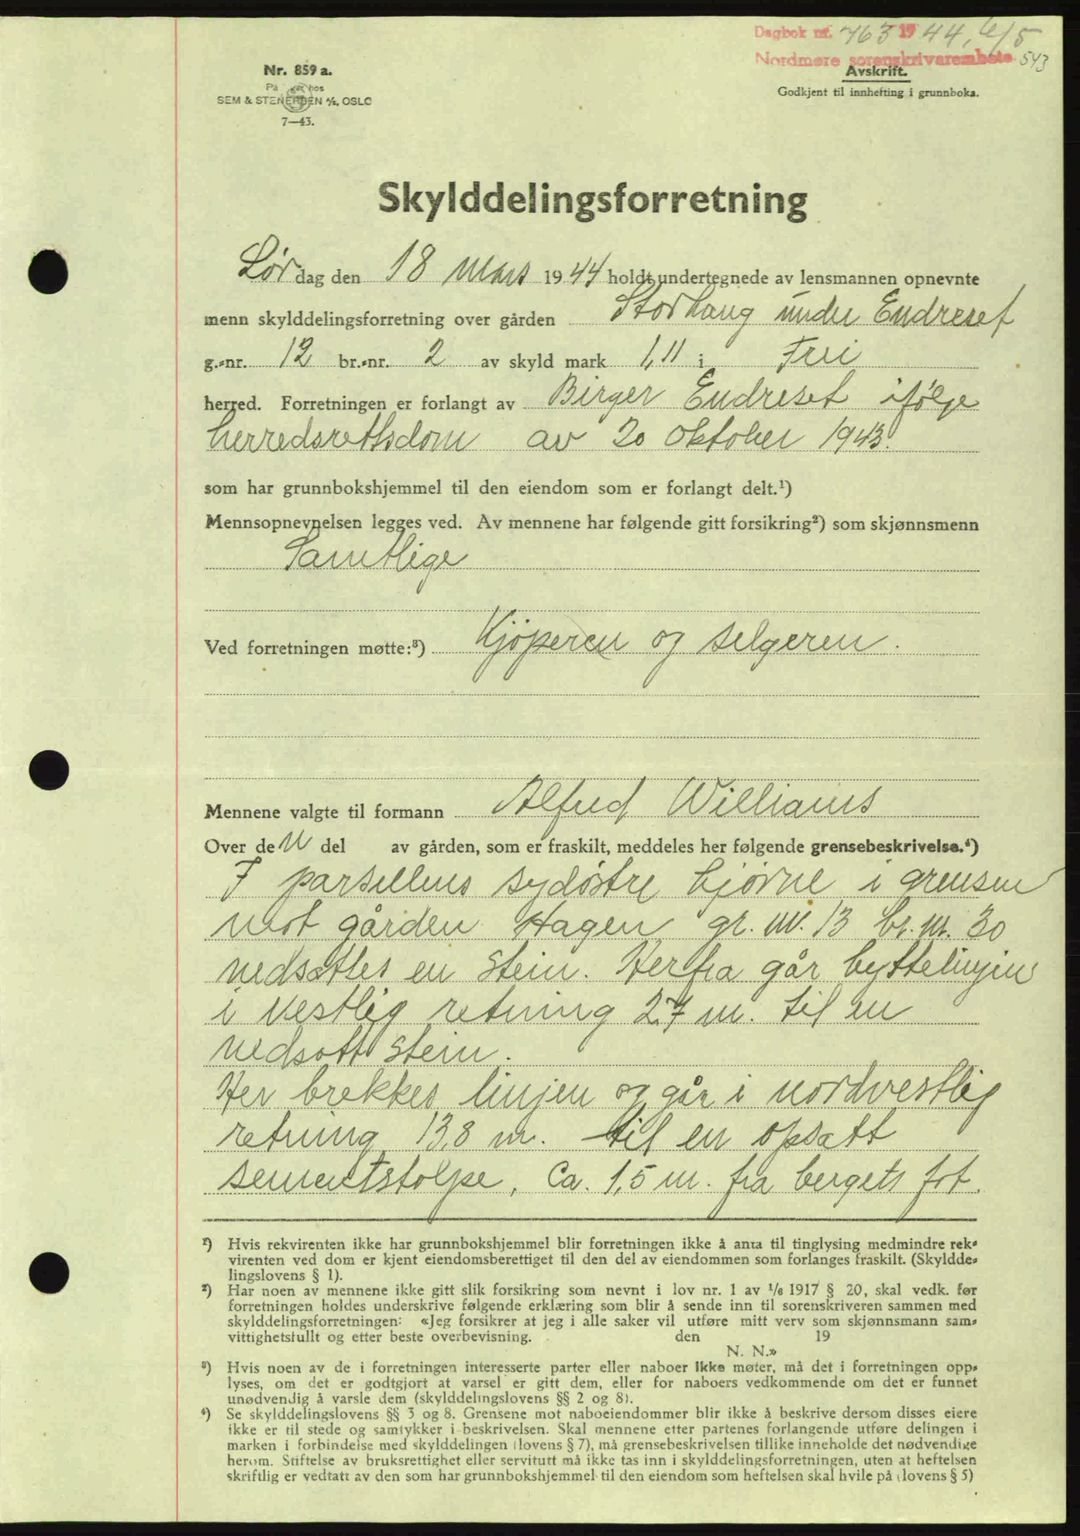 Dagbok nr. 763 1944, 6/5
Nordmøre sorenskrivarembete 543
Nr. 859 a.
På hos
SEM & STENERSEN A/S, OSLO
7—43.
Avskrift.
Godkjent til innhefting i grunnboka.
Skylddelingsforretning
Lørdag den 18 mars 1944 holdt undertegnede av lensmannen opnevnte
menn skylddelingsforretning over gården Storhaug under Endreset
g.-nr. 12 br.-nr. 2 av skyld mark 1,11 i Frei
herred. Forretningen er forlangt av Birger Endreset ifølge
herredsrettsdom av 20 oktober 1943.
som har grunnbokshjemmel til den eiendom som er forlangt delt.¹)
Mennsopnevnelsen legges ved. Av mennene har følgende gitt forsikring²) som skjønnsmenn
Samtlige
Ved forretningen møtte:³) Kjøperen og selgeren.
Mennene valgte til formann Alfred Williams
Over den del av gården, som er fraskilt, meddeles her følgende grensebeskrivelse.⁴)
I parsellens sydøstre hjørne i grensen
mot gården Hagen gr. nr. 13 br. nr. 30
nedsattes en stein. Herfra går byttelinjen
i vestlig retning 27 m. til en
nedsatt stein.
Her brekkes linjen og går i nordvestlig
retning 13,8 m. til en opsatt
sementstolpe, ca. 1,5 m. fra bergets fot.
¹) Hvis rekvirenten ikke har grunnbokshjemmel blir forretningen ikke å anta til tinglysing medmindre rek-
virenten ved dom er kjent eiendomsberettiget til den del av eiendommen som forlanges fraskilt. (Skyldde-
lingslovens § 1).
²) Har noen av mennene ikke gitt slik forsikring som nevnt i lov nr. 1 av 1/6 1917 § 20, skal vedk. før
forretningen holdes underskrive følgende erklæring som blir å sende inn til sorenskriveren sammen med
skylddelingsforretningen: «Jeg forsikrer at jeg i alle saker vil utføre mitt verv som skjønnsmann sam-
vittighetsfullt og etter beste overbevisning. den 19
N. N.»
³) Hvis noen av de i forretningen interesserte parter eller naboer ikke møter, må det i forretningen opp-
lyses, om det er godtgjort at varsel er gitt dem, eller for naboers vedkommende om det er funnet
unødvendig å varsle dem (skylddelingslovens §§ 2 og 8).
⁴) Se skylddelingslovens §§ 3 og 8. Grensene mot naboeiendommer blir ikke å beskrive dersom disses eiere
ikke er til stede og samtykker i beskrivelsen. Skal mennene etter partenes forlangende utføre delingen i
marken i forbindelse med skylddelingen (lovens § 7), må grensebeskrivelsen tillike inneholde det nødvendige
herom. Stiftelse av bruksrettighet eller servitutt må ikke tas inn i skylddelingsforretningen, uten at heftelsen
skriftlig er vedtatt av den som har grunnbokshjemmel til den eiendom som heftelsen skal hvile på (lovens § 5)